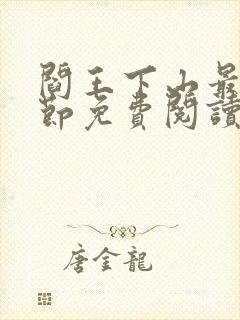 閻王下山最
節免費閱讀
唐金龍